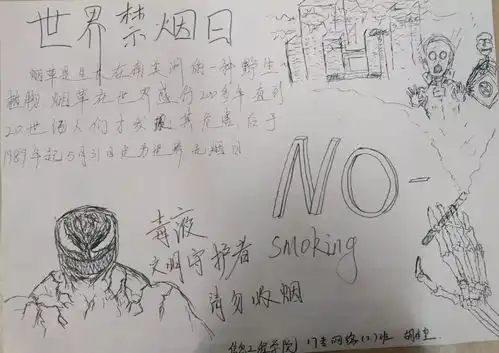 世界禁烟日
烟草是生长在南美洲的一种野生
植物 烟草在世界盛行200多年直到
20世纪人们才发现其危害 后于
1989年起5月31日定为世界无烟日
NO-
smoking
毒液
文明守护者
请勿吸烟
工程学院 17 网络(2)班